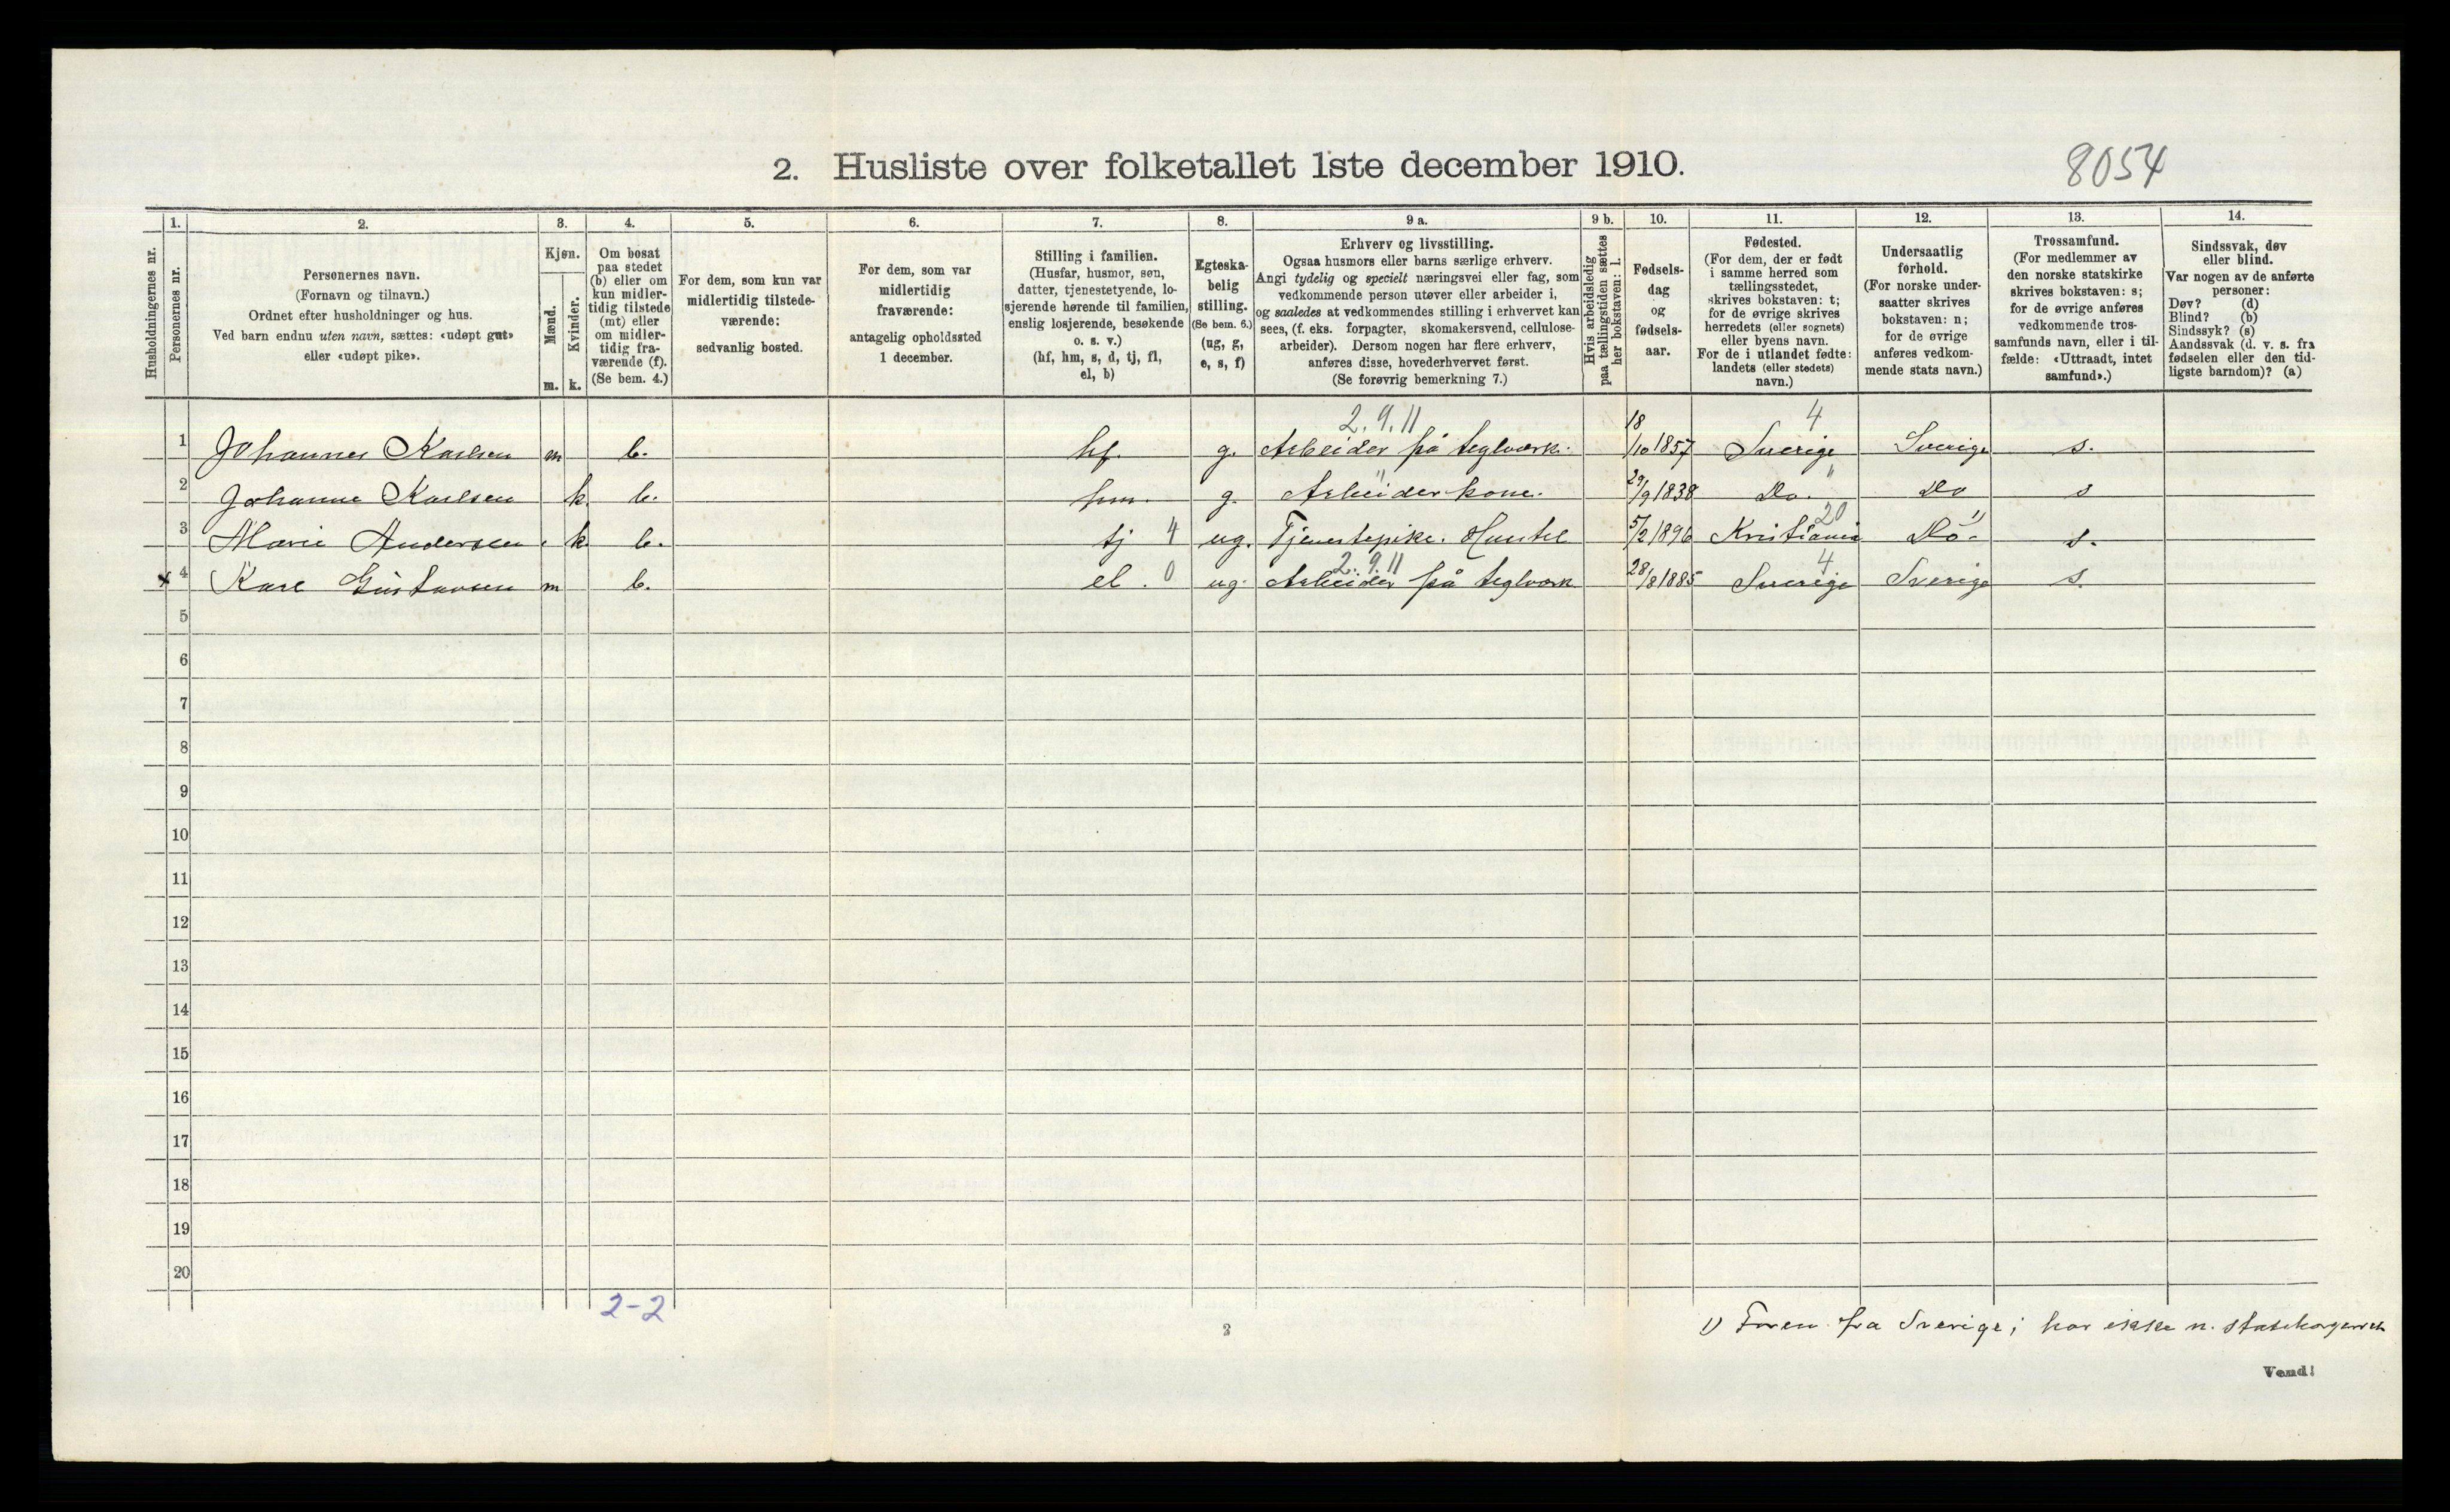 2. Husliste over folketallet 1ste december 1910.
8054
1. 2. 3. 4. 5. 6. 7. 8. 9 a. 9 b. 10. 11. 12. 13. 14.
Husholdningernes nr.
Personernes nr.
Personernes navn.
(Fornavn og tilnavn.)
Ordnet efter husholdninger og hus.
Ved barn endnu uten navn, sættes: «udøpt gut»
eller «udøpt pike».
Kjøn.
Mænd.
Kvinder.
m. k.
Om bosat
paa stedet
(b) eller om
kun midler-
tidig tilstede
(mt) eller
om midler-
tidig fra-
værende (f).
(Se bem. 4.)
For dem, som kun var
midlertidig tilstede-
værende:
sedvanlig bosted.
For dem, som var
midlertidig
fraværende:
antagelig opholdssted
1 december.
Stilling i familien.
(Husfar, husmor, søn,
datter, tjenestetyende, lo-
sjerende hørende til familien,
enslig losjerende, besøkende
o. s. v.)
(hf, hm, s, d, tj, fl,
el, b)
Egteska-
belig
stilling.
(Se bem. 6.)
(ug, g,
e, s, f)
Erhverv og livsstilling.
Ogsaa husmors eller barns særlige erhverv.
Angi tydelig og specielt næringsvei eller fag, som
vedkommende person utøver eller arbeider i,
og saaledes at vedkommendes stilling i erhvervet kan
sees, (f. eks. forpagter, skomakersvend, cellulose-
arbeider). Dersom nogen har flere erhverv,
anføres disse, hovederhvervet først.
(Se forøvrig bemerkning 7.)
Hvis arbeidsledig
paa tællingstiden sættes
her bokstaven: l.
Fødsels-
dag
og
fødsels-
aar.
Fødested.
(For dem, der er født
i samme herred som
tællingsstedet,
skrives bokstaven: t;
for de øvrige skrives
herredets (eller sognets)
eller byens navn.
For de i utlandet fødte:
landets (eller stedets)
navn.)
Undersaatlig
forhold.
(For norske under-
saatter skrives
bokstaven: n;
for de øvrige
anføres vedkom-
mende stats navn.)
Trossamfund.
(For medlemmer av
den norske statskirke
skrives bokstaven: s;
for de øvrige anføres
vedkommende tros-
samfunds navn, eller i til-
fælde: «Uttraadt, intet
samfund».)
Sindssvak, døv
eller blind.
Var nogen av de anførte
personer:
Døv? (d)
Blind? (b)
Sindssyk? (s)
Aandssvak (d. v. s. fra
fødselen eller den tid-
ligste barndom)? (a)
2.9.11 4
1 Johannes Karlsen m b. hf. g. Arbeider på teglværk. 18/10 1857 Sverige Sverige s.
" "
2 Johanne Karlsen k. b. hm. g. Arbeiderkone. 29/9 1838 Do. Do s
20
3 Marie Andersen k b. tj 4 ug. Tjenestepike. 5/2 1896 Kristiania Do 1) s.
2.9.11 4
x 4 Karl Gustavsen m b. el. 0 ug. Arbeider på teglværk 28/8 1885 Sverige Sverige s.
5
6
7
8
9
10
11
12
13
14
15
16
17
18
19
20
2-2
1) Faren fra Sverige; har ikke n. statsborgerret
2
Vend!